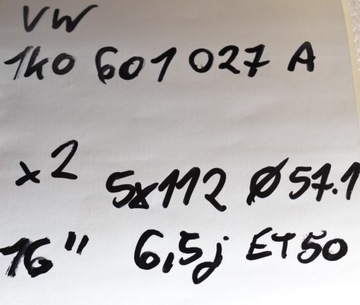 VW
1k0 601 027 A
x2
5x112 Ø57.1
16" 6,5j ET50